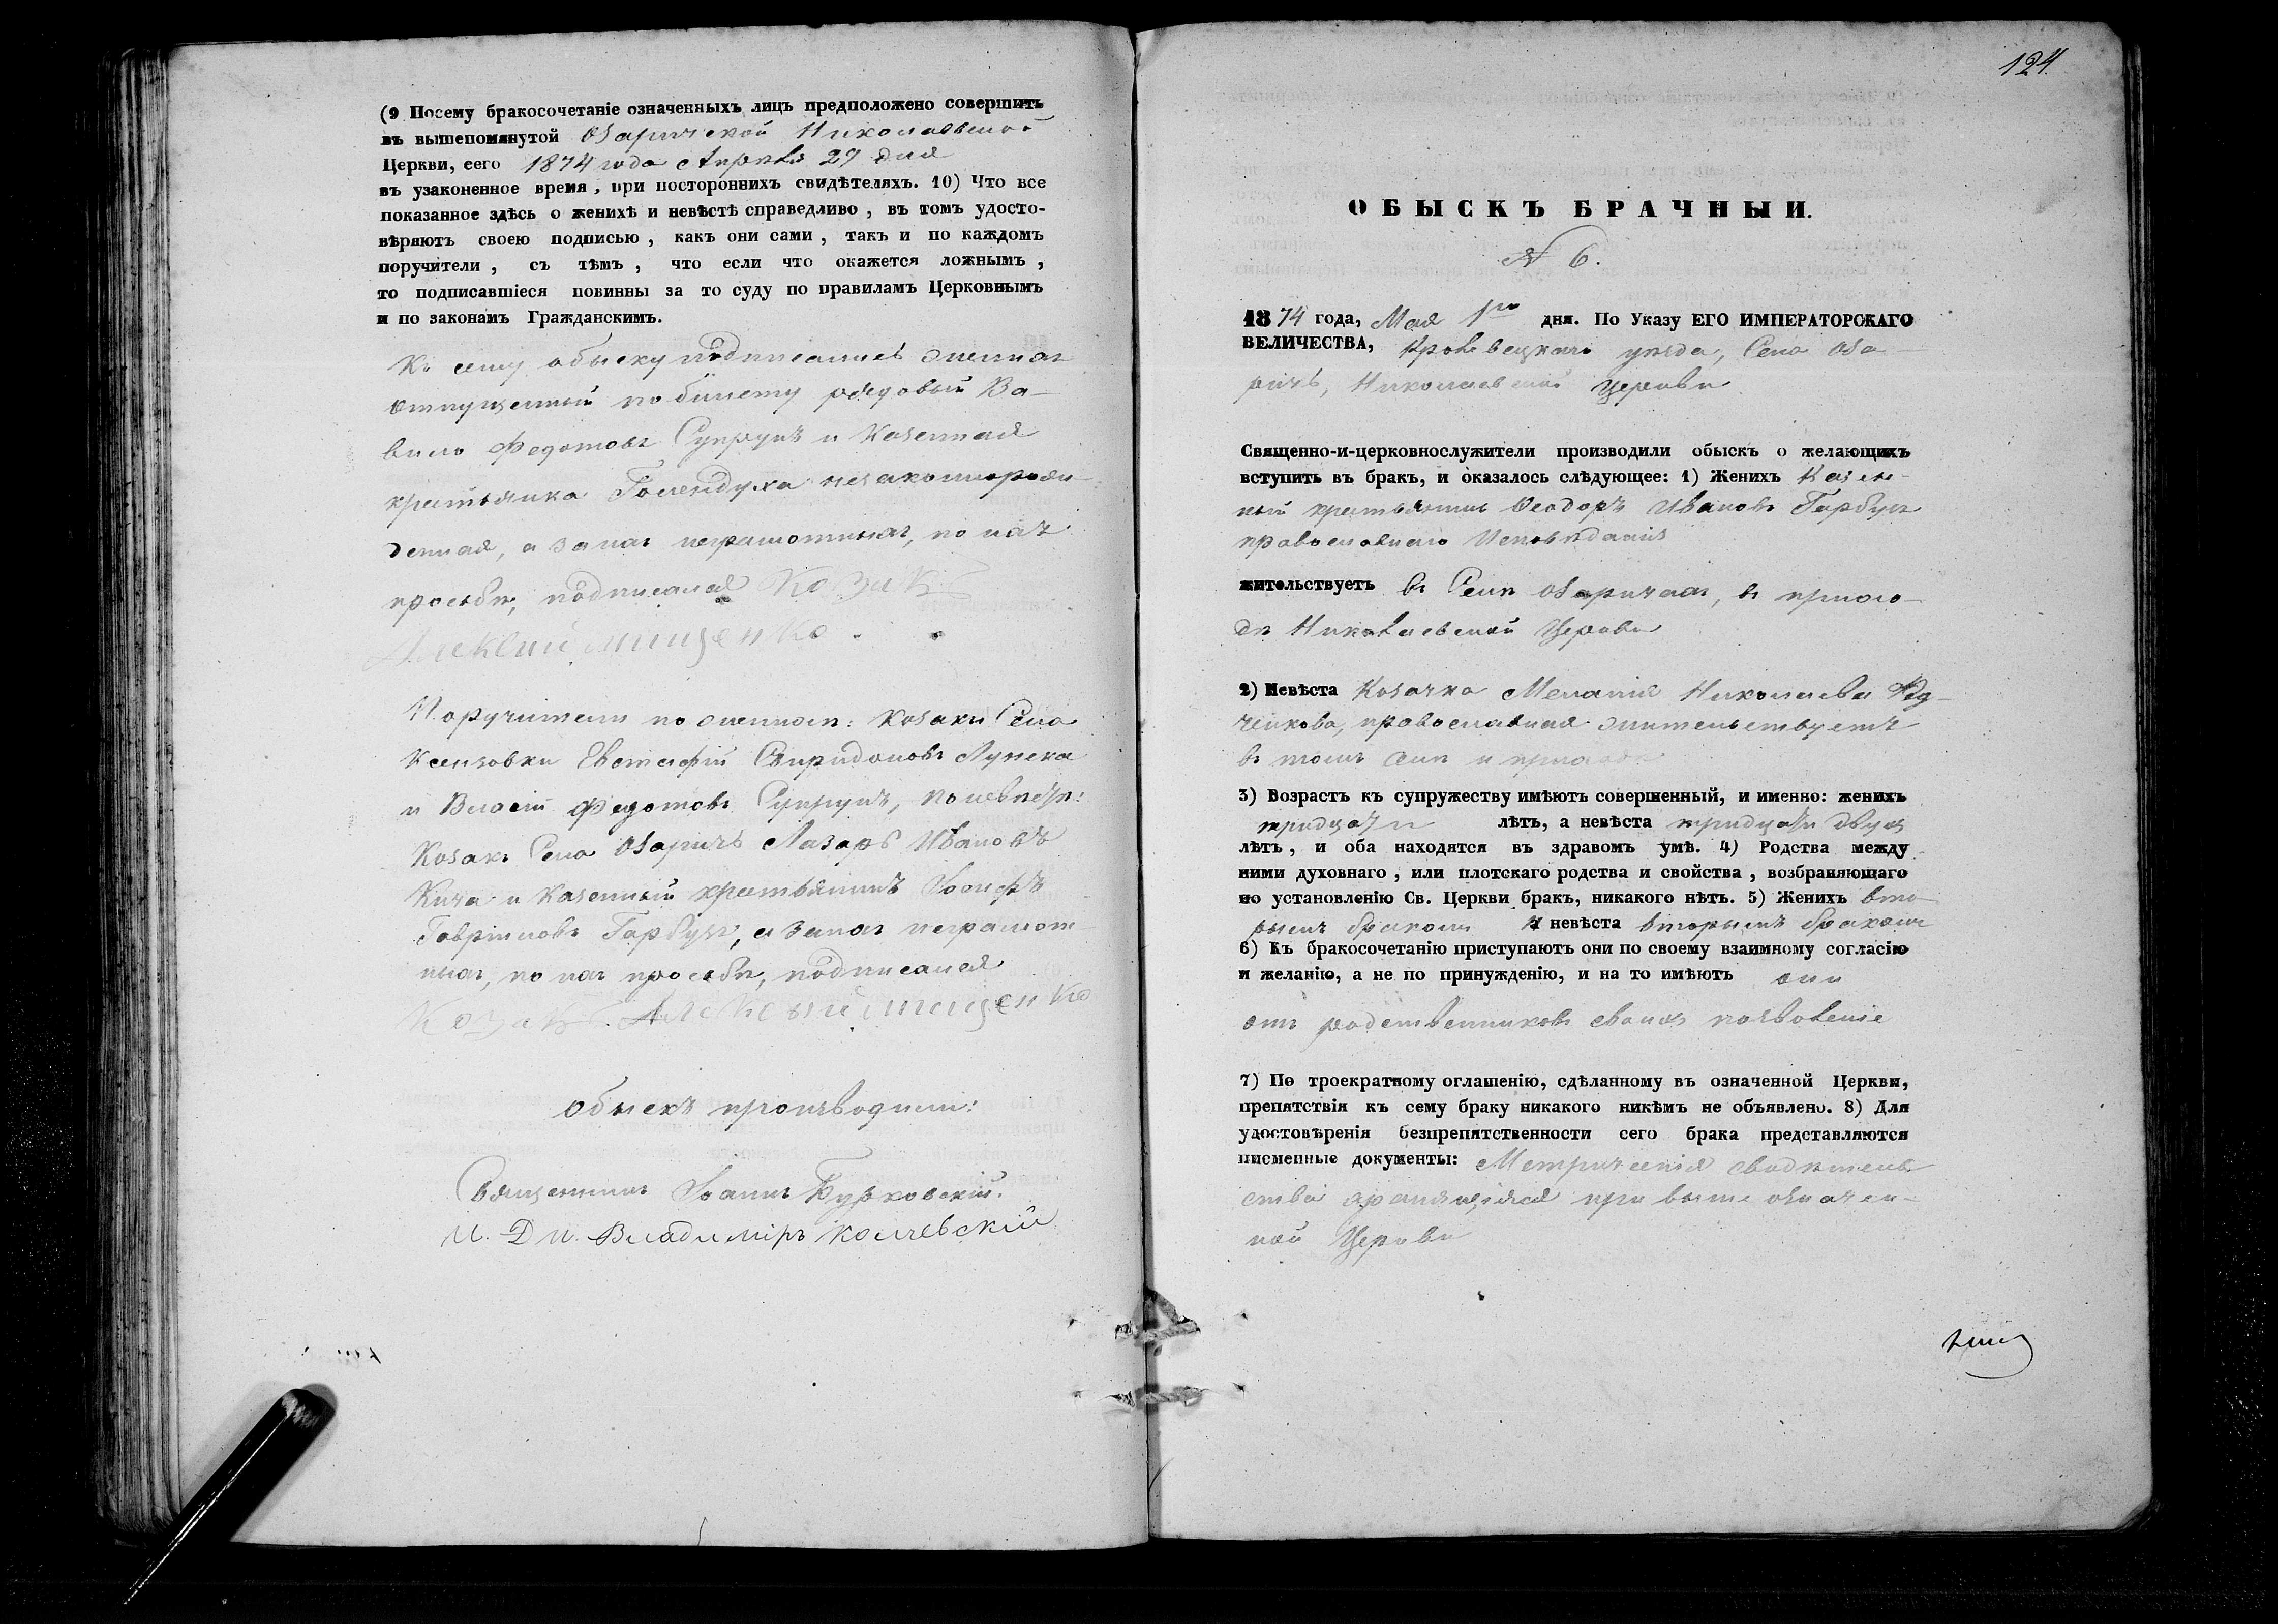 (9 Посему бракосочетаніе означенныхъ лицъ предположено совершить
въ вышепомянутой Озаричской Николаевской
Церкви, сего 1874 года Апрѣля 29 дня
въ узаконенное время, при постороннихъ свидѣтеляхъ. 10) Что все
показанное здѣсь о женихѣ и невѣстѣ справедливо, въ томъ удосто-
вѣряютъ своею подписью, какъ они сами, такъ и по каждомъ
поручители, съ тѣмъ, что если что окажется ложнымъ,
то подписавшіеся повинны за то суду по правиламъ Церковнымъ
и по законамъ Гражданскимъ.
Къ сему обыску подписались женихъ
отпущенный по билету рядовый Ва-
вило Федотовъ Супрунъ и Казенная
крестьянка Голендуха незаконнорож-
денная, а за нихъ неграмотныхъ, по ихъ
просьбѣ, подписался Козакъ
Алексѣй Мищенко.
Поручители по женихѣ: Козаки Села
Ксензовки Евстафій Свиридоновъ Лупека
и Власій Федотовъ Супрунъ, по невѣстѣ:
Козакъ Села Озаричъ Лазарь Ивановъ
Кича и Казенный крестьянинъ Іосифъ
Гавріиловъ Гарбузъ, а за нихъ неграмот-
ныхъ, по ихъ просьбѣ, подписался
Козакъ Алексѣй Мищенко
Обыскъ производили:
Священникъ Іоаннъ Бурховскій.
И. Д. п. Владиміръ Колчевскій
124.
ОБЫСКЪ БРАЧНЫЙ.
№ 6.
1874 года, Мая 1го дня. По Указу ЕГО ИМПЕРАТОРСКАГО
ВЕЛИЧЕСТВА, Кролевецкаго уѣзда, Села Оза-
ричъ, Николаевской Церкви
Священно-и-церковнослужители производили обыскъ о желающихъ
вступить въ бракъ, и оказалось слѣдующее: 1) Женихъ Казен-
ный крестьянинъ Ѳеодоръ Ивановъ Гарбузъ
православнаго Исповѣданія
жительствуетъ въ Селѣ Озаричахъ, въ прихо-
дѣ Николаевской Церкви
2) Невѣста Козачка Меланія Николаева
православная жительствуетъ
въ томъ селѣ и приходѣ
3) Возрастъ къ супружеству имѣютъ совершенный, и именно: женихъ
тридцати лѣтъ, а невѣста тридцати двухъ
лѣтъ, и оба находятся въ здравомъ умѣ. 4) Родства между
ними духовнаго, или плотскаго родства и свойства, возбраняющаго
по установленію Св. Церкви бракъ, никакого нѣтъ. 5) Женихъ вто-
рымъ бракомъ и невѣста вторымъ бракомъ
6) Къ бракосочетанію приступаютъ они по своему взаимному согласію
и желанію, а не по принужденію, и на то имѣютъ они
отъ родственниковъ своихъ позволеніе
7) По троекратному оглашенію, сдѣланному въ означенной Церкви,
препятствія къ сему браку никакого никѣмъ не объявлено. 8) Для
удостовѣренія безпрепятственности сего брака представляются
писменные документы: Метрическія свидѣтель-
ства хранящіяся при выше означен-
ной Церкви